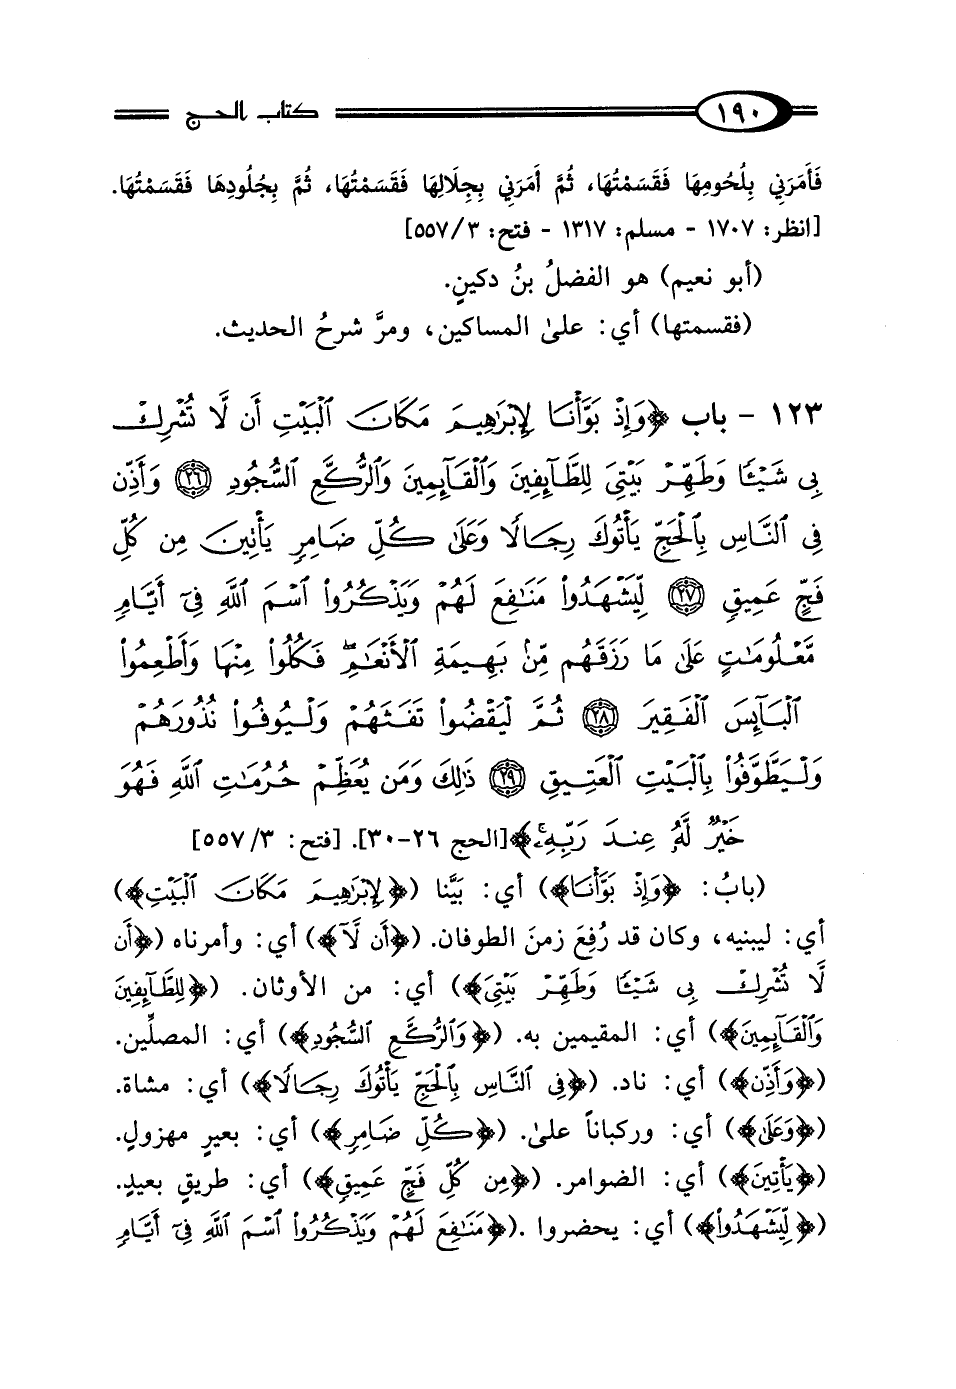 ١٩٠ كتاب الحج
فَأَمَرَنِي بِلُحُومِهَا فَقَسَمْتُهَا، ثُمَّ أَمَرَنِي بِجِلَالِهَا فَقَسَمْتُهَا، ثُمَّ بِجُلُودِهَا فَقَسَمْتُهَا.
[انظر: ١٧٠٧ - مسلم: ١٣١٧ - فتح: ٣/ ٥٥٧]
(أبو نعيم) هو الفضلُ بنُ دكينٍ.
(فقسمتها) أي: علىٰ المساكين، ومرَّ شرحُ الحديث.
١٢٣ - باب ﴿وَإِذْ بَوَّأْنَا لِإِبْرَٰهِيمَ مَكَانَ ٱلْبَيْتِ أَن لَّا تُشْرِكْ
بِى شَيْـًٔا وَطَهِّرْ بَيْتِىَ لِلطَّآئِفِينَ وَٱلْقَآئِمِينَ وَٱلرُّكَّعِ ٱلسُّجُودِ ٢٦ وَأَذِّن
فِى ٱلنَّاسِ بِٱلْحَجِّ يَأْتُوكَ رِجَالًا وَعَلَىٰ كُلِّ ضَامِرٍ يَأْتِينَ مِن كُلِّ
فَجٍّ عَمِيقٍ ٢٧ لِّيَشْهَدُوا۟ مَنَٰفِعَ لَهُمْ وَيَذْكُرُوا۟ ٱسْمَ ٱللَّهِ فِىٓ أَيَّامٍ
مَّعْلُومَٰتٍ عَلَىٰ مَا رَزَقَهُم مِّنۢ بَهِيمَةِ ٱلْأَنْعَٰمِ ۖ فَكُلُوا۟ مِنْهَا وَأَطْعِمُوا۟
ٱلْبَآئِسَ ٱلْفَقِيرَ ٢٨ ثُمَّ لْيَقْضُوا۟ تَفَثَهُمْ وَلْيُوفُوا۟ نُذُورَهُمْ
وَلْيَطَّوَّفُوا۟ بِٱلْبَيْتِ ٱلْعَتِيقِ ٢٩ ذَٰلِكَ وَمَن يُعَظِّمْ حُرُمَٰتِ ٱللَّهِ فَهُوَ
خَيْرٌ لَّهُۥ عِندَ رَبِّهِۦ ۗ﴾ [الحج ٢٦-٣٠]. [فتح: ٣/ ٥٥٧]
(بابُ: ﴿وَإِذْ بَوَّأْنَا﴾) أي: بيَّنا (﴿لِإِبْرَٰهِيمَ مَكَانَ ٱلْبَيْتِ﴾)
أي: ليبنيه، وكان قد رُفِعَ زمنَ الطوفان. (﴿أَن لَّآ﴾) أي: وأمرناه (﴿أَن
لَّا تُشْرِكْ بِى شَيْـًٔا وَطَهِّرْ بَيْتِىَ﴾) أي: من الأوثان. (﴿لِلطَّآئِفِينَ
وَٱلْقَآئِمِينَ﴾) أي: المقيمين به. (﴿وَٱلرُّكَّعِ ٱلسُّجُودِ﴾) أي: المصلِّين.
(﴿وَأَذِّن﴾) أي: ناد. (﴿فِى ٱلنَّاسِ بِٱلْحَجِّ يَأْتُوكَ رِجَالًا﴾) أي: مشاة.
(﴿وَعَلَىٰ﴾) أي: وركباناً علىٰ. (﴿كُلِّ ضَامِرٍ﴾) أي: بعيرٍ مهزولٍ.
(﴿يَأْتِينَ﴾) أي: الضوامر. (﴿مِن كُلِّ فَجٍّ عَمِيقٍ﴾) أي: طريقٍ بعيدٍ.
(﴿لِّيَشْهَدُوا۟﴾) أي: يحضروا .(﴿مَنَٰفِعَ لَهُمْ وَيَذْكُرُوا۟ ٱسْمَ ٱللَّهِ فِىٓ أَيَّامٍ